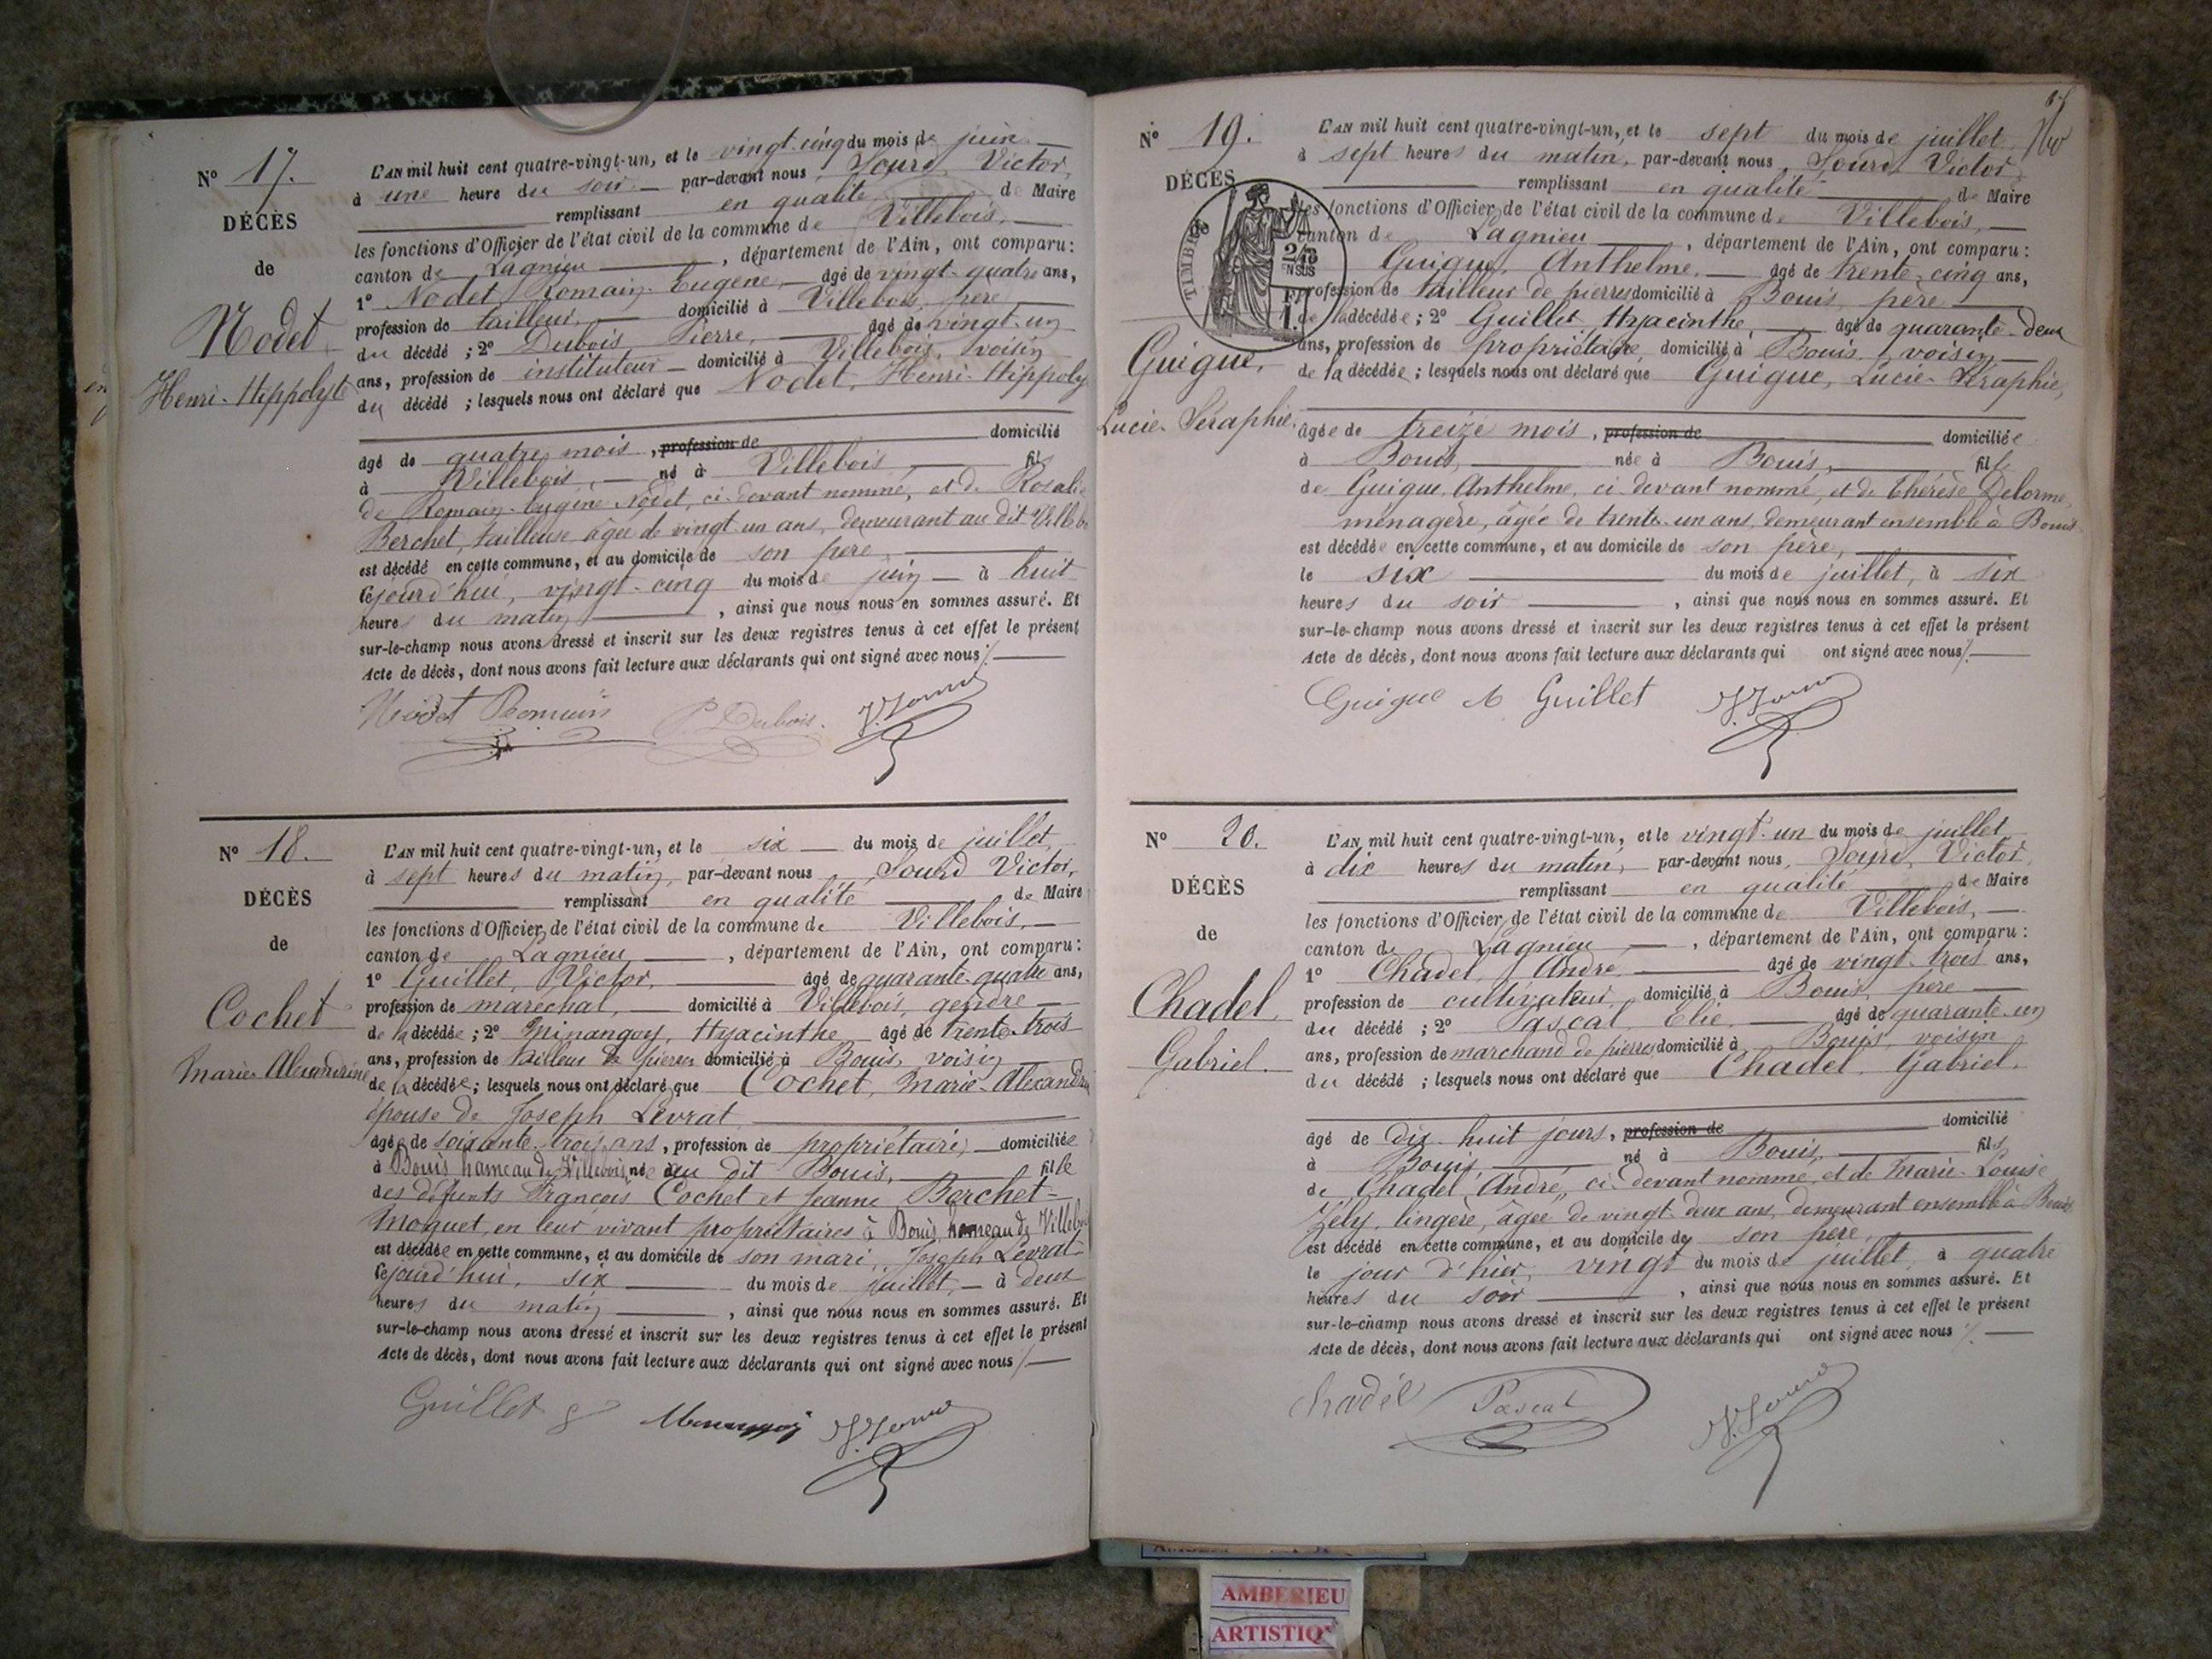 N° 17.
DÉCÈS
de
Nodet
Henri-Hippolyte
L'AN mil huit cent quatre-vingt-un, et le vingt-cinq du mois de juin
à une heure du soir, par-devant nous Sourd, Victor,
remplissant en qualité de Maire
les fonctions d'Officier de l'état civil de la commune de Villebois,
canton de Lagnieu, département de l'Ain, ont comparu :
1° Nodet, Romain-Eugène, âgé de vingt-quatre ans,
profession de tailleur, domicilié à Villebois, père
du décédé ; 2° Dubois, Pierre, âgé de vingt-un
ans, profession de instituteur domicilié à Villebois, voisin
du décédé ; lesquels nous ont déclaré que Nodet, Henri-Hippoly
âgé de quatre mois, profession de domicilié
à Villebois, né à Villebois, fil
de Romain-Eugène Nodet, ci-devant nommé, et de Rosalie
Berchet, tailleuse, âgée de vingt-un ans, demeurant au dit Villebo
est décédé en cette commune, et au domicile de son père,
cejourd'hui, vingt-cinq du mois de juin à huit
heures du matin, ainsi que nous nous en sommes assuré. Et
sur-le-champ nous avons dressé et inscrit sur les deux registres tenus à cet effet le présent
Acte de décès, dont nous avons fait lecture aux déclarants qui ont signé avec nous ./.
Nodet Romain P. Dubois. V. Sourd
N° 18.
DÉCÈS
de
Cochet
Marie-Alexandrine
L'AN mil huit cent quatre-vingt-un, et le six du mois de juillet,
à sept heures du matin, par-devant nous Sourd Victor,
remplissant en qualité de Maire
les fonctions d'Officier de l'état civil de la commune de Villebois,
canton de Lagnieu, département de l'Ain, ont comparu :
1° Guillet, Victor, âgé de quarante-quatre ans,
profession de maréchal, domicilié à Villebois, gendre
de la décédée ; 2° Minangoy, Hyacinthe âgé de trente-trois
ans, profession de tailleur de pierres domicilié à Bouis, voisin
de la décédée ; lesquels nous ont déclaré que Cochet, Marie-Alexandri
épouse de Joseph Levrat
âgée de soixante-trois ans, profession de propriétaire, domiciliée
à Bouis hameau de Villebois, née au dit Bouis, fille
des défunts François Cochet et Jeanne Berchet-
Moguet, en leur vivant propriétaires à Bouis, hameau de Villebois
est décédée en cette commune, et au domicile de son mari, Joseph Levrat
cejourd'hui, six du mois de juillet, à deux
heures du matin, ainsi que nous nous en sommes assuré. Et
sur-le-champ nous avons dressé et inscrit sur les deux registres tenus à cet effet le présent
Acte de décès, dont nous avons fait lecture aux déclarants qui ont signé avec nous ./.
Guillet V. Sourd
N° 19.
DÉCÈS
TIMBRE
Guigue,
Lucie-Séraphie.
L'AN mil huit cent quatre-vingt-un, et le sept du mois de juillet,
à sept heures du matin, par-devant nous, Sourd, Victor,
remplissant en qualité de Maire
les fonctions d'Officier de l'état civil de la commune de Villebois,
canton de Lagnieu, département de l'Ain, ont comparu :
Guigue, Anthelme, âgé de trente-cinq ans,
profession de tailleur de pierres domicilié à Bouis, père
de la décédée ; 2° Guillet, Hyacinthe, âgé de quarante-deux
ans, profession de propriétaire, domicilié à Bouis, voisin
de la décédée ; lesquels nous ont déclaré que Guigue, Lucie-Séraphie,
âgée de treize mois, profession de domiciliée
à Bouis, née à Bouis, fille
de Guigue, Anthelme, ci-devant nommé, et de Thérèse Delorme,
ménagère, âgée de trente-un ans, demeurant ensemble à Bouis
est décédée en cette commune, et au domicile de son père,
le six du mois de juillet, à six
heures du soir, ainsi que nous nous en sommes assuré. Et
sur-le-champ nous avons dressé et inscrit sur les deux registres tenus à cet effet le présent
Acte de décès, dont nous avons fait lecture aux déclarants qui ont signé avec nous ./.
Guigue A Guillet V. Sourd
N° 20.
DÉCÈS
de
Chadel
Gabriel.
L'AN mil huit cent quatre-vingt-un, et le vingt-un du mois de juillet,
à dix heures du matin, par-devant nous, Sourd, Victor,
remplissant en qualité de Maire
les fonctions d'Officier de l'état civil de la commune de Villebois,
canton de Lagnieu, département de l'Ain, ont comparu :
1° Chadel, André, âgé de vingt-trois ans,
profession de cultivateur, domicilié à Bouis, père
du décédé ; 2° Pascal, Elie, âgé de quarante-un
ans, profession de marchand de pierres domicilié à Bouis, voisin
du décédé ; lesquels nous ont déclaré que Chadel, Gabriel,
âgé de dix-huit jours, profession de domicilié
à Bouis, né à Bouis, fils
de Chadel, André, ci-devant nommé, et de Marie-Louise
Zély, lingère, âgée de vingt-deux ans, demeurant ensemble à Bouis
est décédé en cette commune, et au domicile de son père,
le jour d'hier, vingt du mois de juillet, à quatre
heures du soir, ainsi que nous nous en sommes assuré. Et
sur-le-champ nous avons dressé et inscrit sur les deux registres tenus à cet effet le présent
Acte de décès, dont nous avons fait lecture aux déclarants qui ont signé avec nous ./.
Chadel Pascal V. Sourd
AMBERIEU
ARTISTIQ